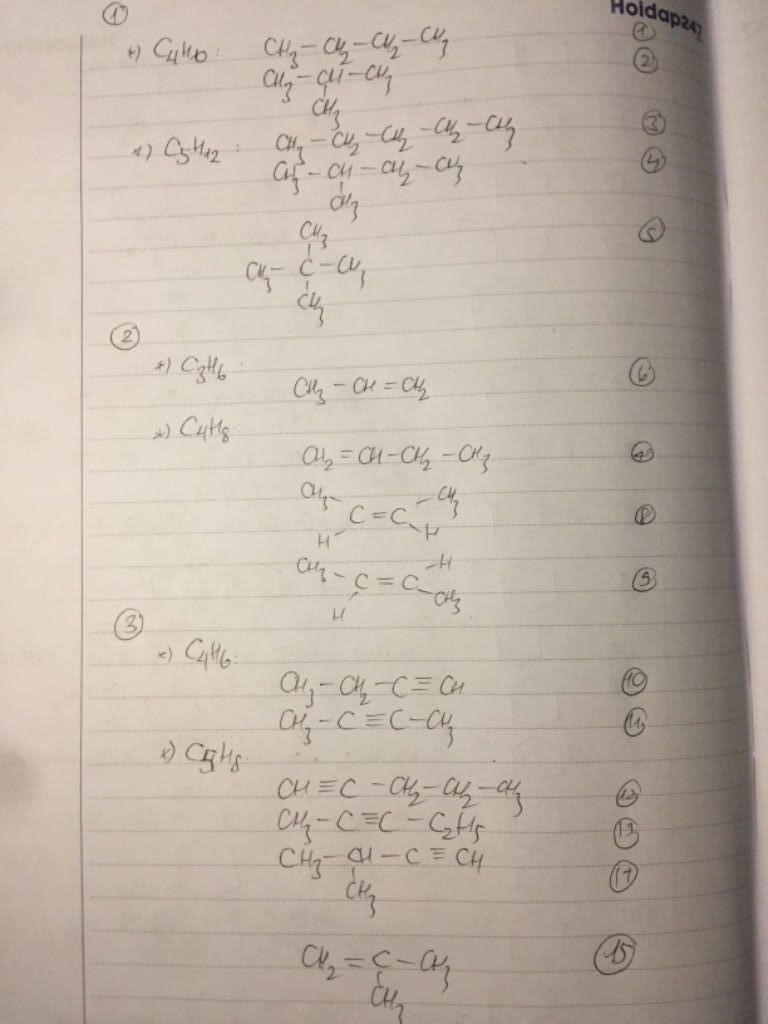 Hoidap247
①
*) C4H10: CH3-CH2-CH2-CH3 ①
CH3-CH-CH3 ②
CH3
*) C5H12: CH3-CH2-CH2-CH2-CH3 ③
CH3-CH-CH2-CH3 ④
CH3
CH3 ⑤
CH3-C-CH3
CH3
②
*) C3H6:
CH3-CH=CH2 ⑥
*) C4H8
CH2=CH-CH2-CH3 ⑦
CH3 CH3
C=C ⑧
H H
CH3 H
C=C ⑨
H CH3
③
*) C4H6:
CH3-CH2-C≡CH ⑩
CH3-C≡C-CH3 ⑪
*) C5H8
CH≡C-CH2-CH2-CH3 ⑫
CH3-C≡C-C2H5 ⑬
CH3-CH-C≡CH ⑰
CH3
CH2=C-CH3 ⑮
CH3